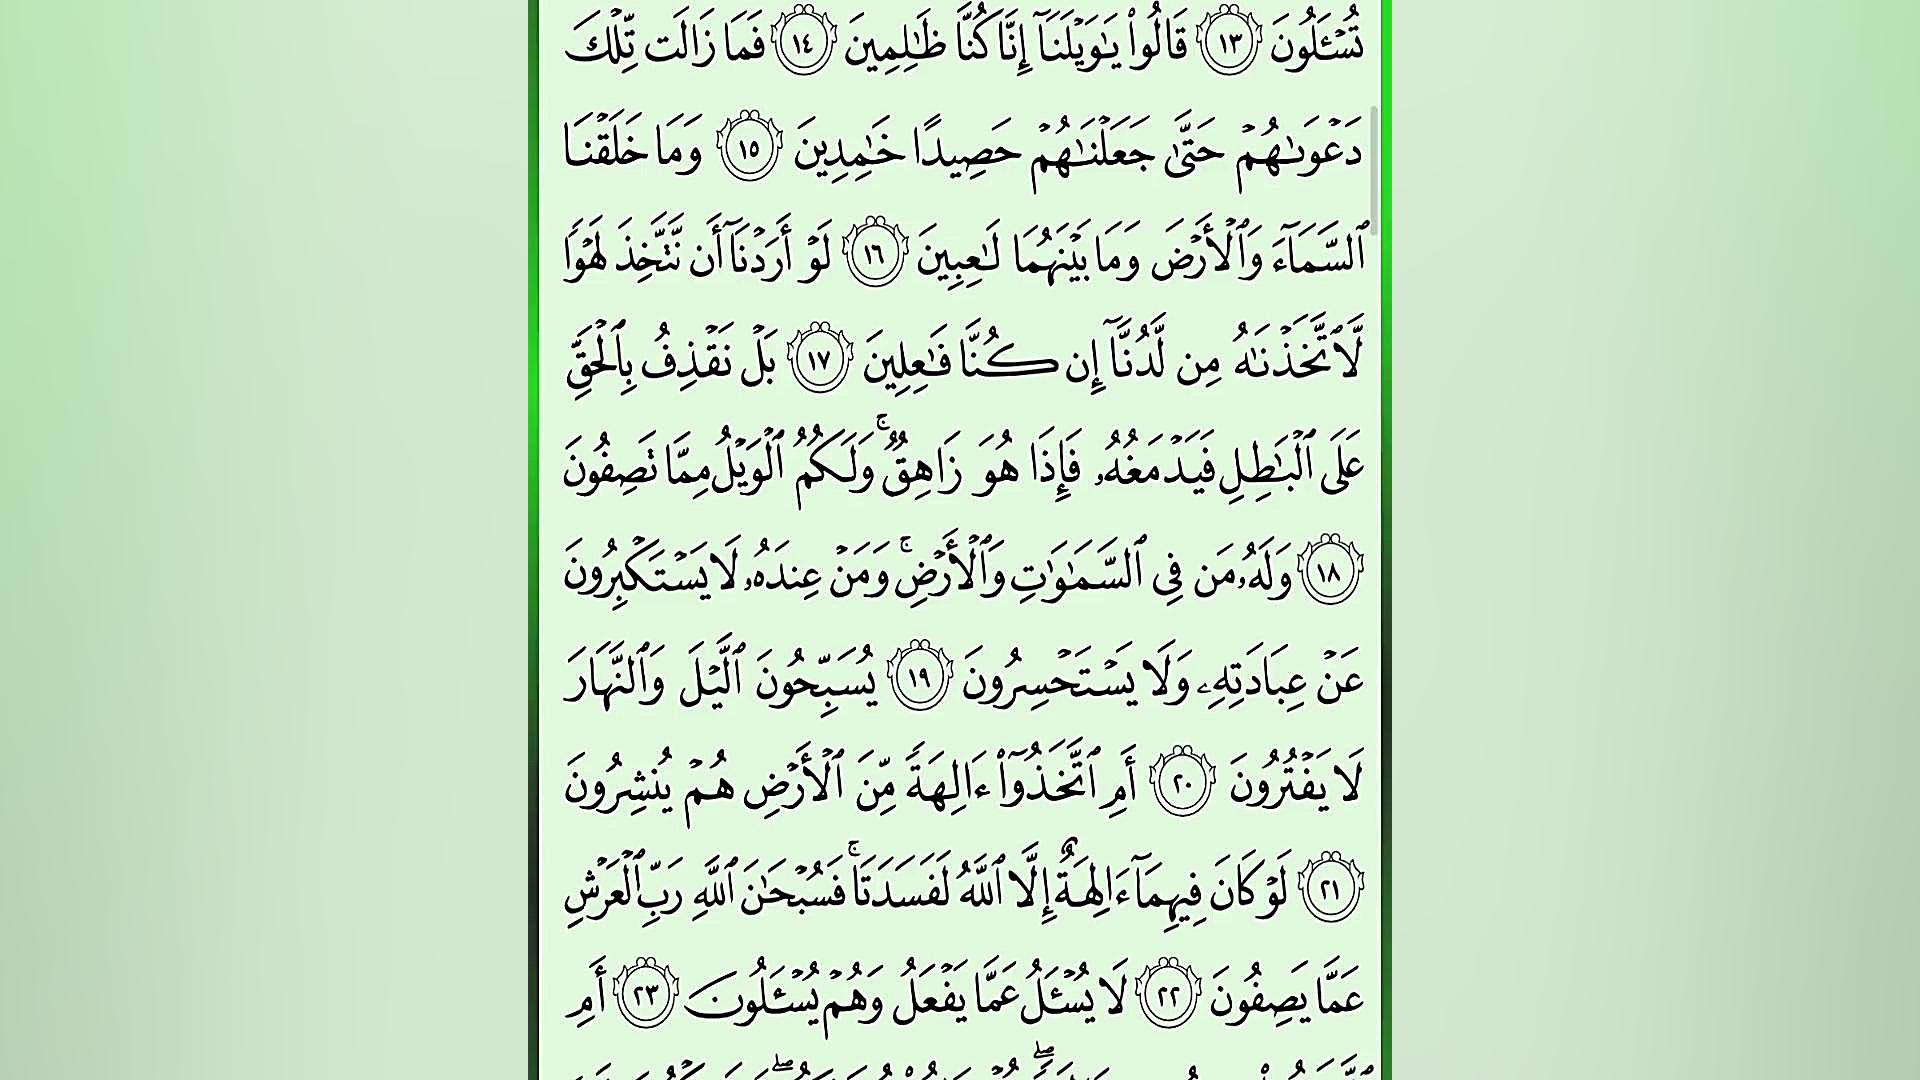 تُسْـَٔلُونَ ١٣ قَالُوا۟ يَـٰوَيْلَنَآ إِنَّا كُنَّا ظَـٰلِمِينَ ١٤ فَمَا زَالَت تِّلْكَ
دَعْوَىٰهُمْ حَتَّىٰ جَعَلْنَـٰهُمْ حَصِيدًا خَـٰمِدِينَ ١٥ وَمَا خَلَقْنَا
ٱلسَّمَآءَ وَٱلْأَرْضَ وَمَا بَيْنَهُمَا لَـٰعِبِينَ ١٦ لَوْ أَرَدْنَآ أَن نَّتَّخِذَ لَهْوًا
لَّٱتَّخَذْنَـٰهُ مِن لَّدُنَّآ إِن كُنَّا فَـٰعِلِينَ ١٧ بَلْ نَقْذِفُ بِٱلْحَقِّ
عَلَى ٱلْبَـٰطِلِ فَيَدْمَغُهُۥ فَإِذَا هُوَ زَاهِقٌ ۚ وَلَكُمُ ٱلْوَيْلُ مِمَّا تَصِفُونَ
١٨ وَلَهُۥ مَن فِى ٱلسَّمَـٰوَٰتِ وَٱلْأَرْضِ ۚ وَمَنْ عِندَهُۥ لَا يَسْتَكْبِرُونَ
عَنْ عِبَادَتِهِۦ وَلَا يَسْتَحْسِرُونَ ١٩ يُسَبِّحُونَ ٱلَّيْلَ وَٱلنَّهَارَ
لَا يَفْتُرُونَ ٢٠ أَمِ ٱتَّخَذُوٓا۟ ءَالِهَةً مِّنَ ٱلْأَرْضِ هُمْ يُنشِرُونَ
٢١ لَوْ كَانَ فِيهِمَآ ءَالِهَةٌ إِلَّا ٱللَّهُ لَفَسَدَتَا ۚ فَسُبْحَـٰنَ ٱللَّهِ رَبِّ ٱلْعَرْشِ
عَمَّا يَصِفُونَ ٢٢ لَا يُسْـَٔلُ عَمَّا يَفْعَلُ وَهُمْ يُسْـَٔلُونَ ٢٣ أَمِ